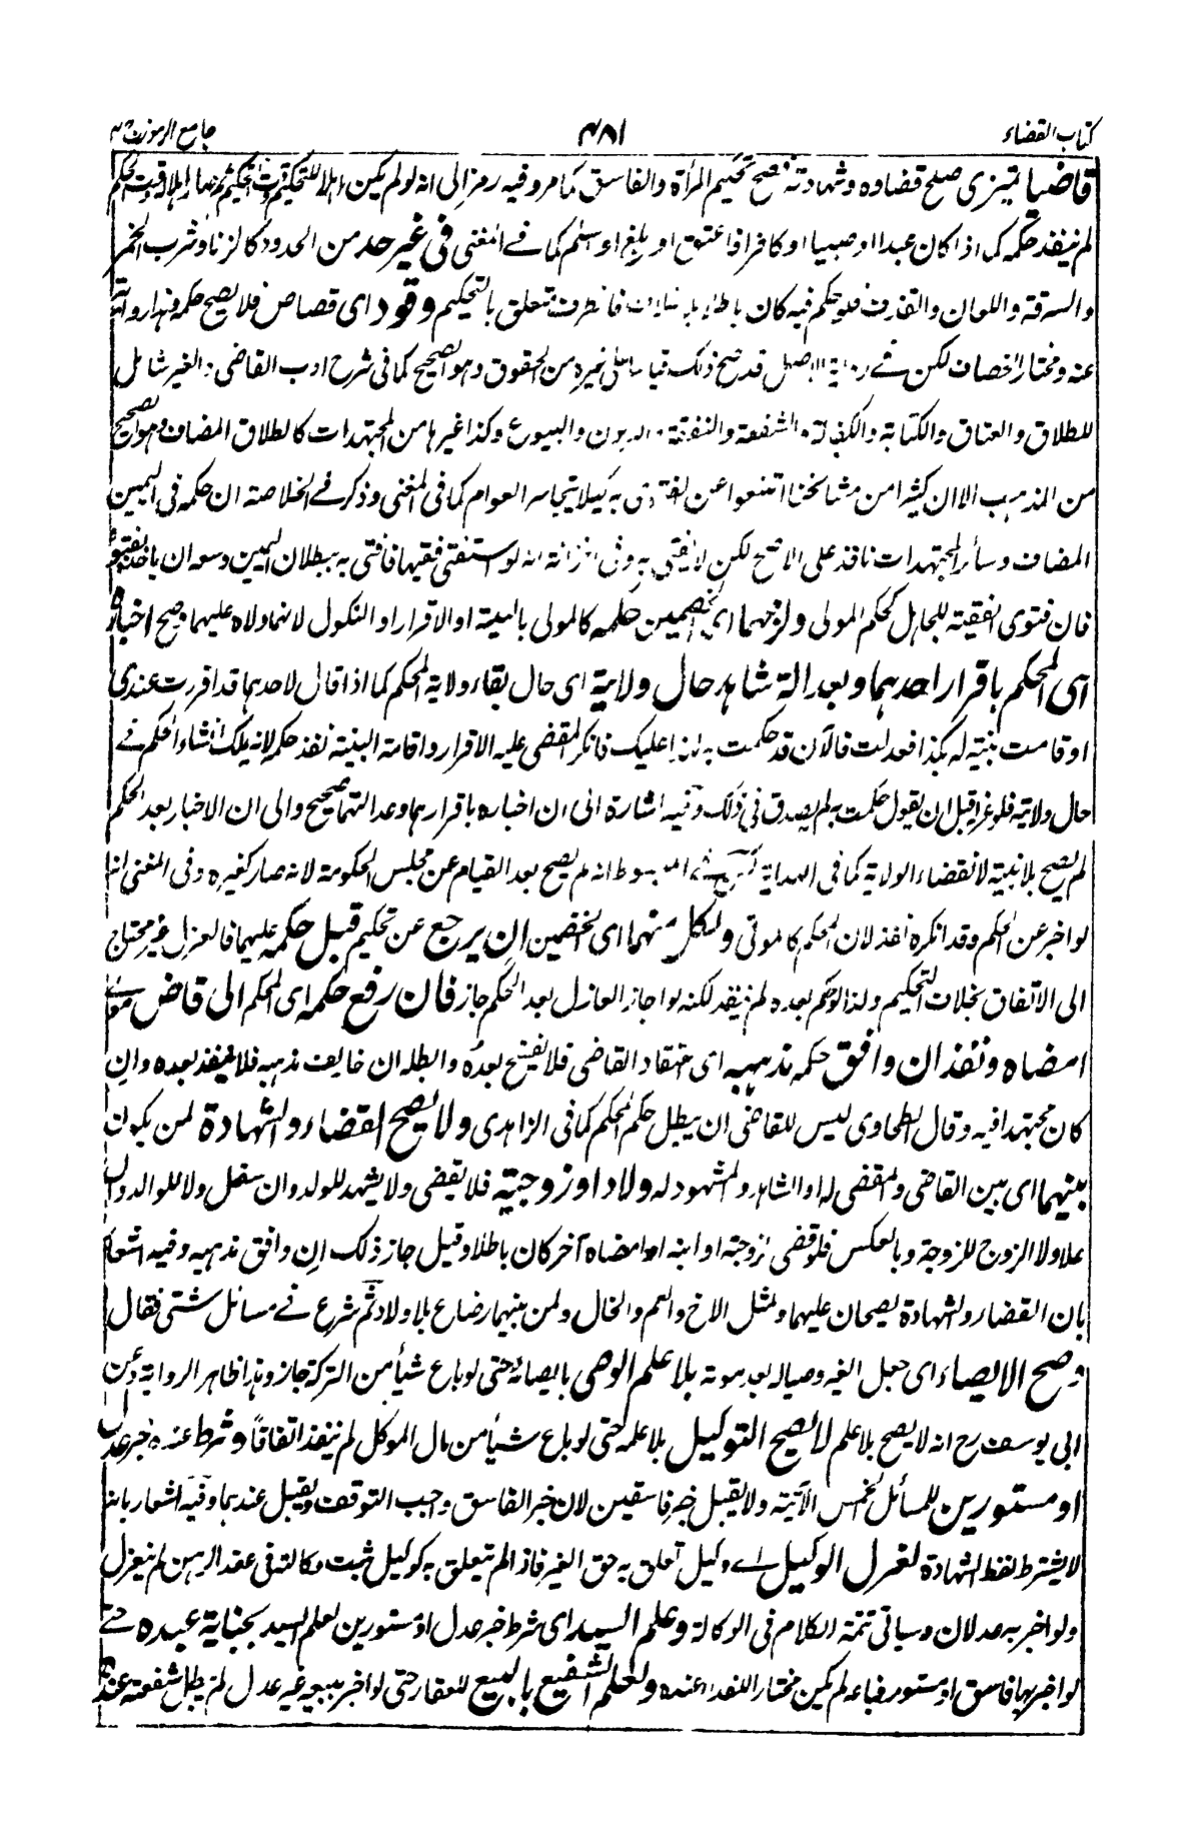 كتاب القضاء
٤٨١
جامع الرموز ج ٢
قاضيا تميزى صلح قضاوه وشهادته فصح تحكيم المرأة والفاسق كما مر وفيه رمز الى انه لو لم يكن اهلا للتحكيم وقت التحكيم ثم صار اهلا وقت الحكم
لم ينفذ حكمه كما اذا كان عبدا او صبيا او كافرا فاعتق او بلغ او اسلم كما فى المغنى فى غير حد من الحدود كالزنا وشرب الخمر
والسرقة واللعان والقذف فلو حكم فيه كان باطلا بالتحكيم وقود اى قصاص فلا يصح حكمه فيه
عنه ومختار الخصاف لكن فى رواية الاصل قد صح ذلك قياسا على غيره من الحقوق وهو الصحيح كما فى شرح ادب القاضى والغير شامل
للطلاق والعتاق والكتابة والكفالة والشفعة والنفقة والديون والبيوع وكذا غيرها من المجتهدات كالطلاق المضاف وهو الصحيح
من المذهب الا ان كثيرا من مشائخنا امتنعوا عن الفتوى به كيلا يتجاسر العوام كما فى المغنى وذكر فى الخلاصة ان حكمه فى اليمين
المضاف وسائر المجتهدات نافذ على الاصح لكن لا يفتى به وفى الخزانة انه لو استفتى فقيها فافتى به ببطلان اليمين وسعه ان ياخذ بفتواه
فان فتوى الفقيه للجاهل كحكم المولى ولزمهما اى الخصمين حكمه كالمولى بالبينة او الاقرار او النكول لانهما ولاه عليهما وصح اخباره
اى المحكم باقرار احدهما وبعدالة شاهد حال ولايته اى حال بقاء ولاية المحكم كما اذا قال لاحدهما قد اقررت عندى
او قامت بينة له بكذا فعدلت فالآن قد حكمت به لهذا عليك فانكر المقضى عليه الاقرار واقامة البينة نفذ حكمه لانه يملك انشاء الحكم فى
حال ولايته فلو عزله قبل ان يقول حكمت به لم يصدق فى ذلك وفيه اشارة الى ان اخباره باقرارهما وعدالتهما صحيح والى ان الاخبار بعد الحكم
لم يصح بلا بينة لانقضاء الولاية كما فى الهداية المبسوط انه لم يصح بعد القيام عن مجلس الحكومة لانه صار كغيره وفى المغنى انه
لو اخبر عن الحكم وقد انكره نفذ لان المحكم كالمولى ولكل منهما اى الخصمين ان يرجع عن تحكيم قبل حكمه عليهما فالعزل غير محتاج
الى الاتفاق بخلاف التحكيم ولذا لو حكم بعده لم ينفذ لكنه لو اجاز العازل بعد الحكم جاز فان رفع حكمه اى المحكم الى قاض مولى
امضاه ونفذ ان وافق حكمه مذهبه اى اعتقاد القاضى فلا يفتح بعده وابطله ان خالف مذهبه فلا ينفذ بعده وان
كان مجتهدا فيه وقال الطحاوى ليس للقاضى ان يبطل حكم المحكم كما فى الزاهدى ولا يصح القضاء والشهادة لمن يكون
بينهما اى بين القاضى والمقضى له او الشاهد والمشهود له ولاد او زوجية فلا يقضى ولا يشهد للولد وان سفل ولا للوالد وان
علا ولا الزوج للزوجة وبالعكس فلو قضى لزوجته او ابنه او امضاه آخر كان باطلا وقيل جاز ذلك ان وافق مذهبه وفيه اشعار
بان القضاء والشهادة يصحان عليهما ولمثل الاخ والعم والخال ولمن بينهما رضاع بلا ولاد ثم شرع فى مسائل شتى فقال
وصح الايصاء اى جعل الغير وصيا له بعد موته بلا علم الوصى بايصائه حتى لو باع شيأ من التركة جاز وهذا ظاهر الرواية وعن
ابى يوسف رح انه لا يصح بلا علم لا يصح التوكيل بلا علمه حتى لو باع شيأ من مال الموكل لم ينفذ اتفاقا وشرط عنده خبر عدل
او مستورين للمسائل الخمس الآتية ولا يقبل خبر فاسقين لان خبر الفاسق واجب التوقف ويقبل عندهما وفيه اشعار بانه
لا يشترط لفظ الشهادة لعزل الوكيل اى وكيل تعلق به حق الغير فاذا لم يتعلق به كوكيل ثبت وكالته فى عقد الرهن لم ينعزل
ولو اخبر به عدلان وسياتى تتمة الكلام فى الوكالة وعلم السيد اى شرط خبر عدل او مستورين لعلم السيد بجناية عبده حتى
لو اخبر بها فاسق او مستور فباعه لم يكن مختارا للفداء عنده ولعلم الشفيع بالبيع للعقار حتى لو اخبر ببيعه غير عدل لم يبطل شفعته عنده